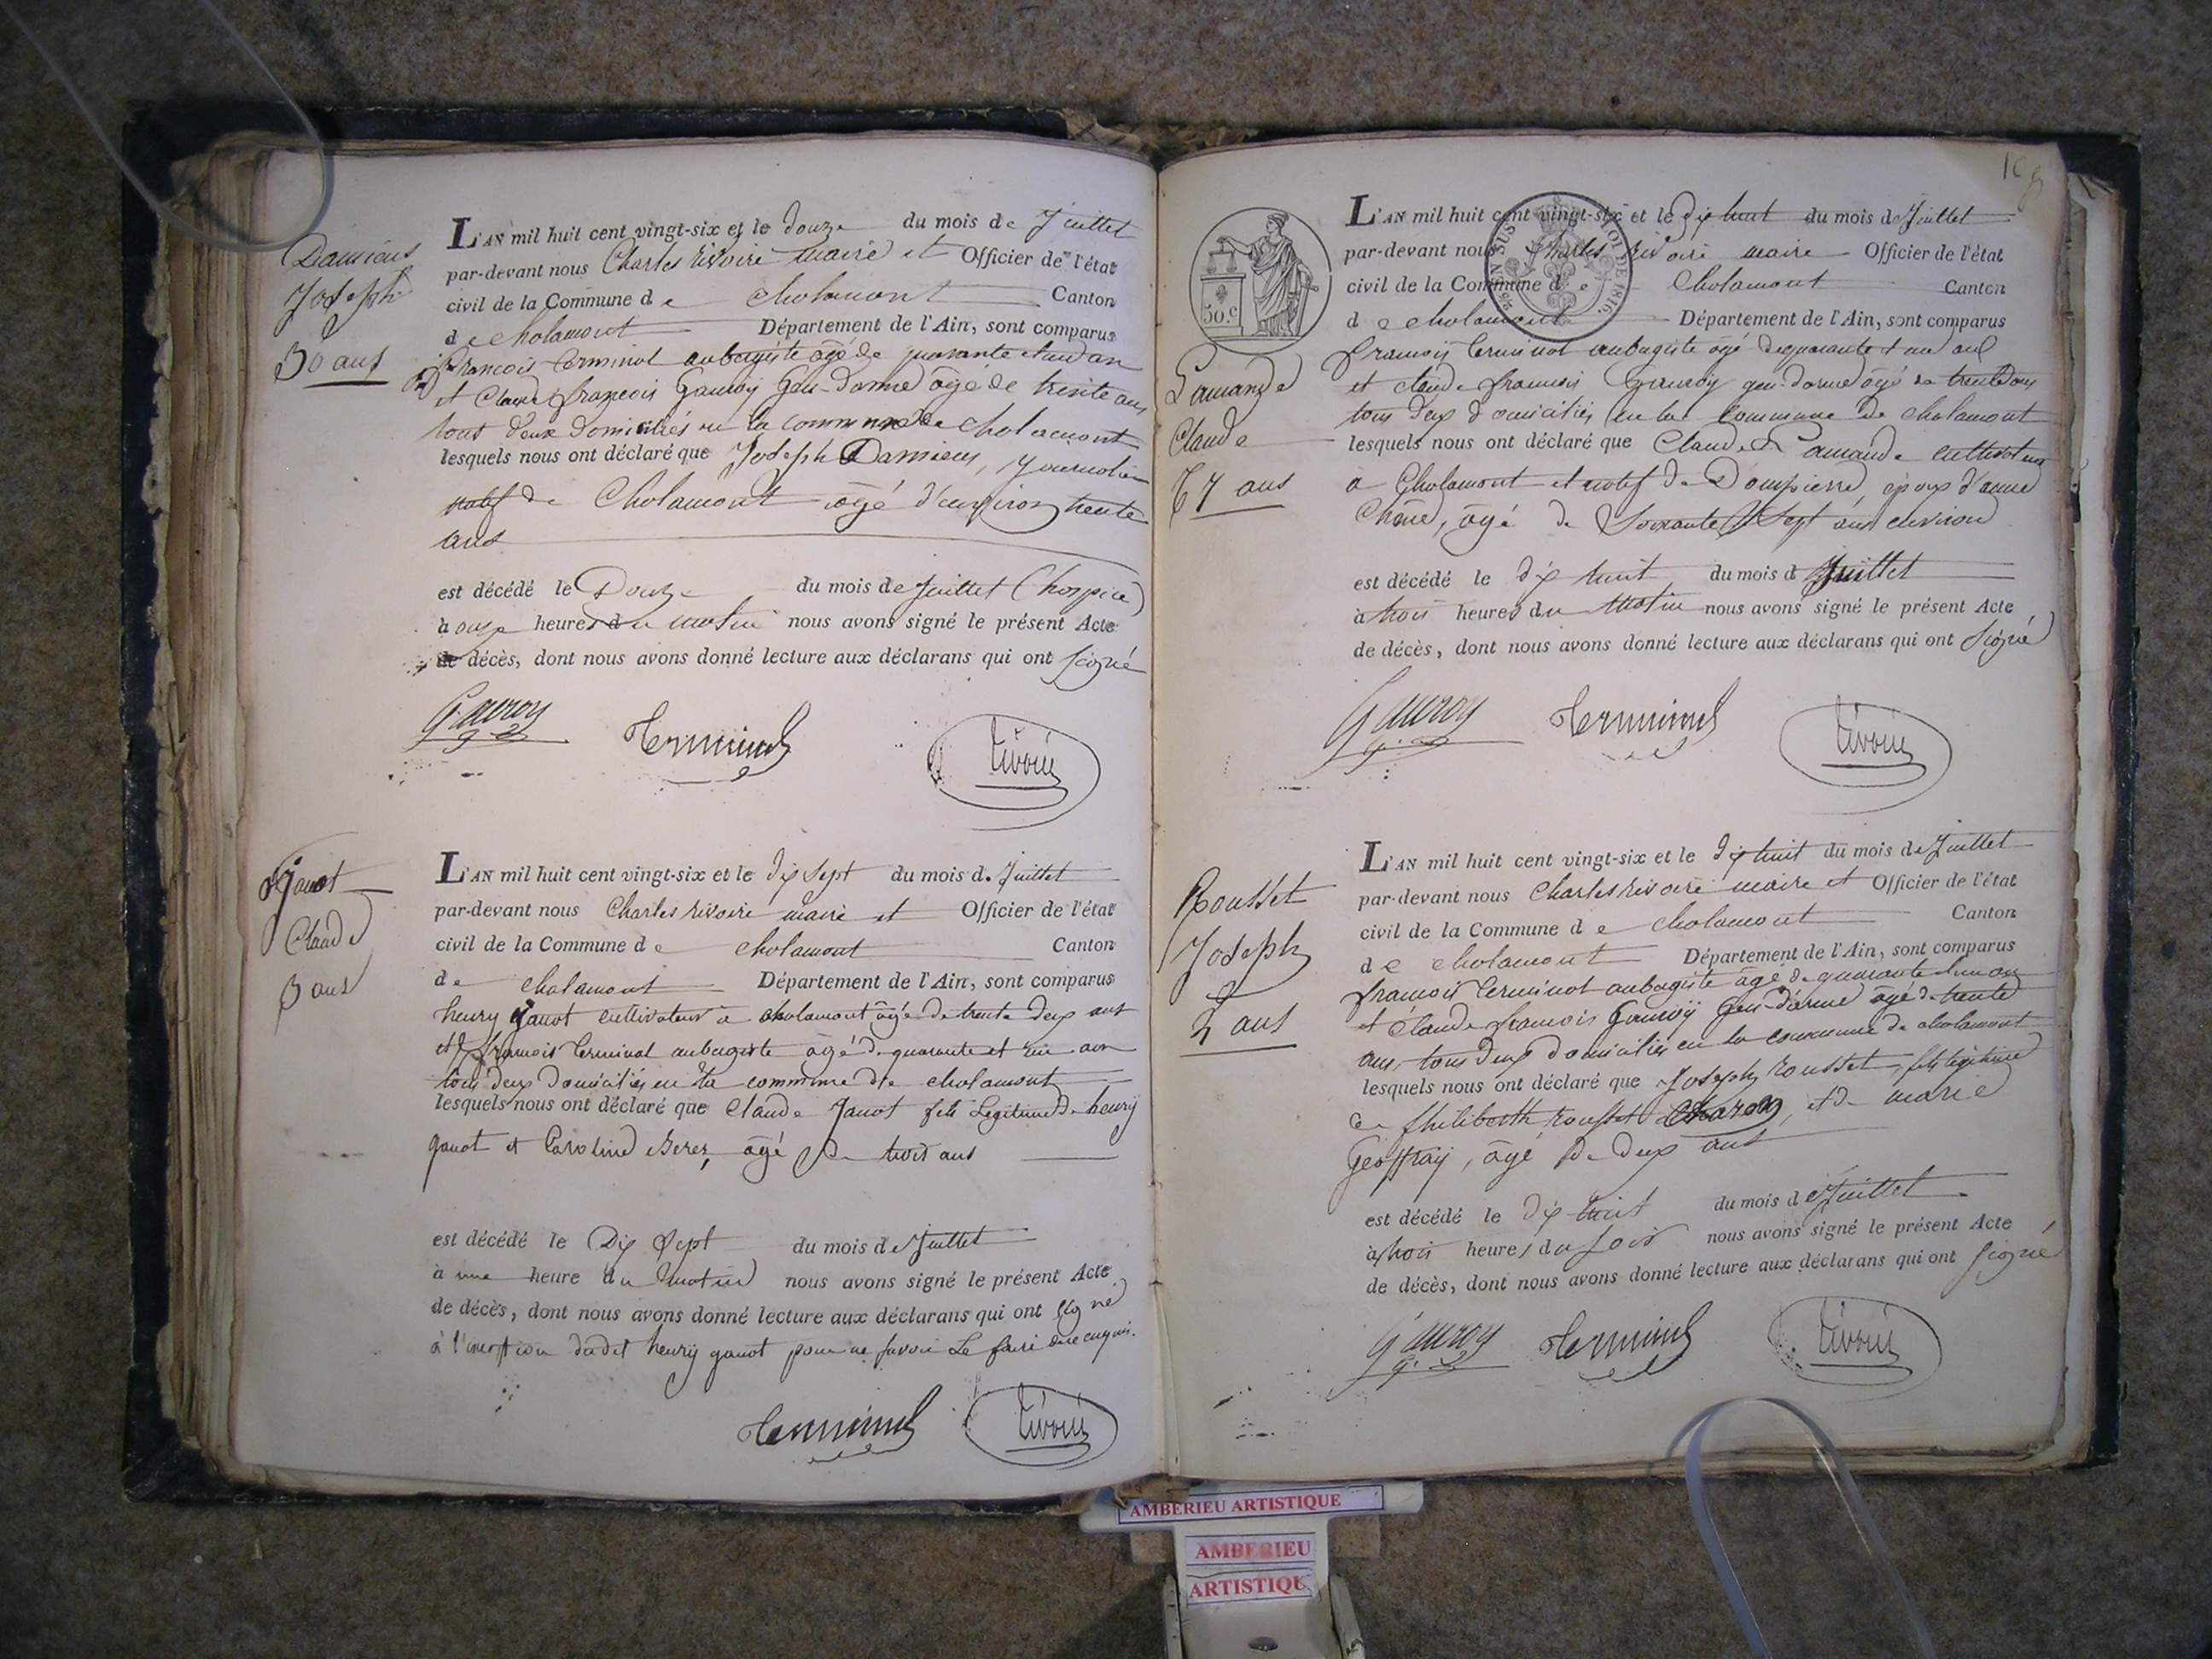 Damiens
Joseph
30 ans
L'AN mil huit cent vingt-six et le douze du mois de Juillet
par-devant nous Charles rivoire maire et Officier de l'état
civil de la Commune de cholamont Canton
de cholamont Département de l'Ain, sont comparus
francois Terminot aubergiste âgé de quarante et un an
et Claude françois Gauroy Gen-darme âgé de trente ans
tous deux domiciliés en la commune de cholamont
lesquels nous ont déclaré que Joseph Damiens, Journalier
natif de Cholamont âgé d'environ trente
ans
est décédé le Douze du mois de Juillet (hospice)
à onze heures du matin nous avons signé le présent Acte
de décès, dont nous avons donné lecture aux déclarans qui ont signé
Gauroy Terminot rivoire
Janot
Claude
3 ans
L'AN mil huit cent vingt-six et le dix sept du mois de Juillet
par-devant nous Charles rivoire maire et Officier de l'état
civil de la Commune de cholamont Canton
de cholamont Département de l'Ain, sont comparus
henry Janot cultivateur à cholamont âgé de trente deux ans
et françois Terminot aubergiste âgé de quarante et un an
tous deux domiciliés en la commune de cholamont
lesquels nous ont déclaré que Claude Janot fils Légitime de henry
janot et Caroline âgé de trois ans
est décédé le Dix Sept du mois de Juillet
à une heure du matin nous avons signé le présent Acte
de décès, dont nous avons donné lecture aux déclarans qui ont signé
à l'exception dudit henry ganot pour ne savoir Le faire de ce enquis.
Terminot rivoire
50.C
L'AN mil huit cent vingt-six et le dix huit du mois de Juillet
par-devant nous Charles rivoire maire Officier de l'état
civil de la Commune de Cholamont Canton
de cholamont Département de l'Ain, sont comparus
Lamande
Claude
67 ans
françois Terminot aubergiste âgé de quarante et un ans
et claude francois Gauroy gen-darme âgé de trente ans
tous deux domiciliés en la Commune de cholamont
lesquels nous ont déclaré que Claude Lamande cultivateur
à Cholamont et natif de Dompierre, époux d'anne
Chêne, âgé de Soixante Sept ans environ
est décédé le dix huit du mois de Juillet
à trois heures du Matin nous avons signé le présent Acte
de décès, dont nous avons donné lecture aux déclarans qui ont signé
Gauroy Terminot rivoire
Rousset
Joseph
2 ans
L'AN mil huit cent vingt-six et le dix huit du mois de Juillet
par-devant nous Charles rivoire maire et Officier de l'état
civil de la Commune de cholamont Canton
de cholamont Département de l'Ain, sont comparus
françois Terminot aubergiste âgé de quarante et un an
et Claude francois Gauroy Gen-darme âgé de trente
ans, tous deux domiciliés en la commune de cholamont
lesquels nous ont déclaré que Joseph rousset, fils légitime
de philiberth rousset et de marie
Geoffray, âgé de deux ans
est décédé le dix huit du mois de Juillet
à trois heures du soir nous avons signé le présent Acte
de décès, dont nous avons donné lecture aux déclarans qui ont signé
Gauroy Terminot rivoire
AMBERIEU ARTISTIQUE
AMBERIEU
ARTISTIQU